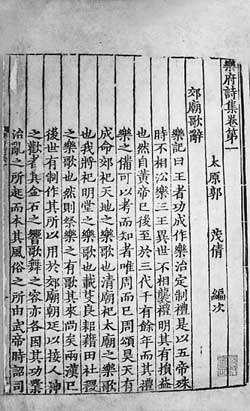 樂府詩集卷第一
太原郭 茂倩 編次
郊廟歌辭
樂記曰王者功成作樂治定制禮是以五帝殊
時不相㳂樂三王異世不相襲禮明其有損益
也然自黃帝已後至於三代千有餘年而其禮
樂之備可以考而知者唯周而已周頌昊天有
成命郊祀天地之樂歌也清廟祀太廟之樂歌
也我將祀明堂之樂歌也載芟良耜藉田社稷
之樂歌也然則祭樂之有歌其來尚矣兩漢已
後世有制作其所以用於郊廟朝廷以接人神
之歡者其金石之響歌舞之容亦各因其功業
治亂之所起而本其風俗之所由武帝時詔司